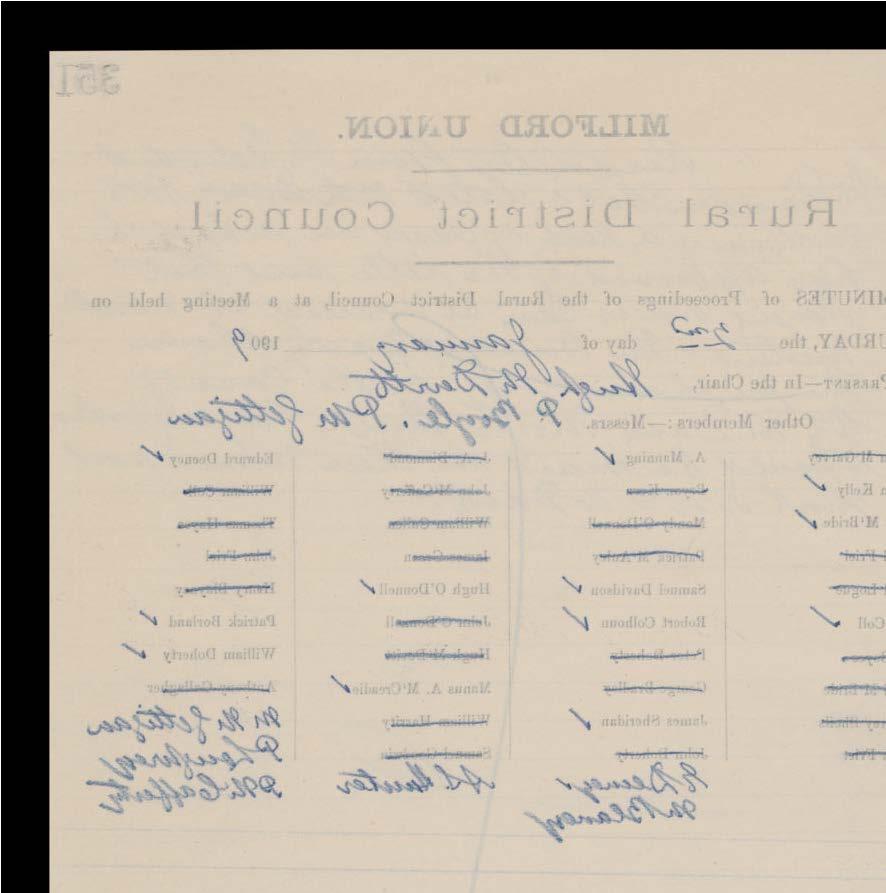 351
MILFORD UNION.
Rural District Council.
MINUTES of Proceedings of the Rural District Council, at a Meeting held on
URDAY, the 2nd day of January 1909
PRESENT—In the Chair, Hugh McDevitt
Other Members:—Messrs. P. Boyle. P McGettigan
M'Garvey A. Manning J. A. Diamond Edward Deeney
Kelly John M'Cafferty William Coll
M'Bride Mandy O'Donnell William Cullen Thomas Hayes
Friel Patrick M'Auley James Green John Friel
Logue Samuel Davidson Hugh O'Donnell Henry Blayney
Coll Robert Colhoun John O'Donnell Patrick Borland
Peter Doherty Hugh M'Devitt William Doherty
M'Bride George Bradley Manus A. M'Creadie Anthony Gallagher
Sheils James Sheridan William Harrity M McGettigan
Friel John Doherty Samuel Goodwin
E Deeney A L Hunter P McCafferty
M Blaney